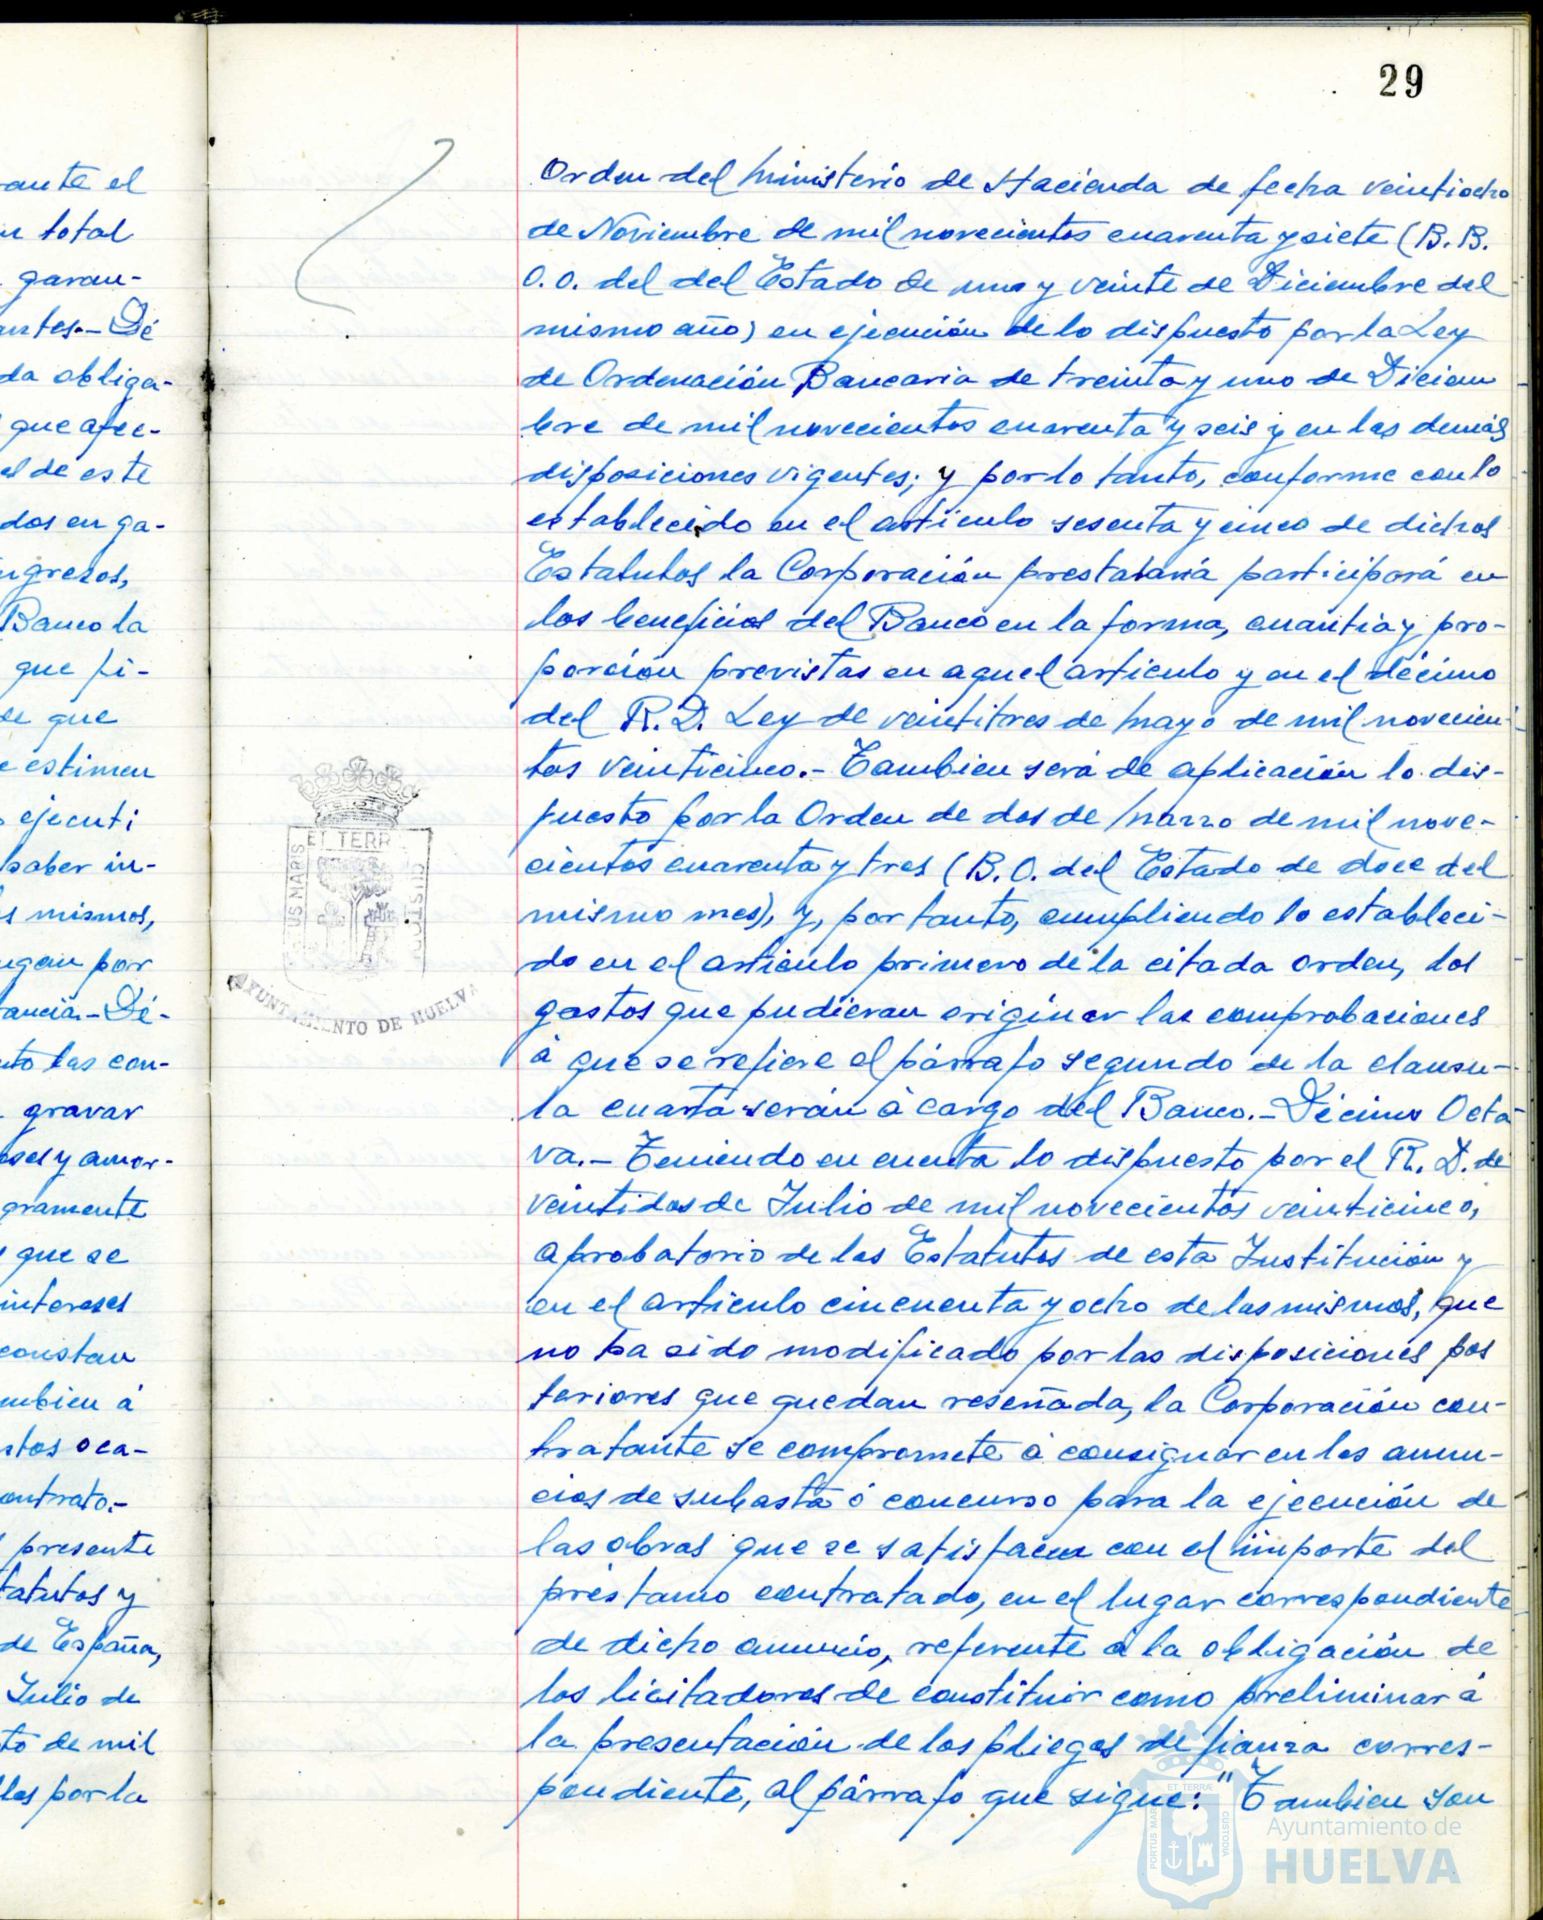 29
rante el
total
garan-
antes.- Dé
da obliga-
que afec-
el de este
dos en ga-
ingresos,
Banco la
que fi-
de que
e estimen
ejecuti
saber in-
s mismos,
ngan por
ancia.- Dé-
nto las con-
gravar
eses y amor-
gramente
que se
intereses
constan
mbien á
stos oca-
ontrato.-
presente
tatutos y
de España,
Julio de
to de mil
les por la
Orden del Ministerio de Hacienda de fecha veintiocho
de Noviembre de mil novecientos cuarenta y siete (B.B.
O.O. del del Estado de uno y veinte de Diciembre del
mismo año) en ejecución de lo dispuesto por la Ley
de Ordenación Bancaria de treinta y uno de Diciem
bre de mil novecientos cuarenta y seis y en las demás
disposiciones vigentes; y por lo tanto, conforme con lo
establecido en el artículo sesenta y cinco de dichos
Estatutos la Corporación prestataria participará en
los beneficios del Banco en la forma, cuantia y pro-
porción previstas en aquel articulo y en el décimo
del R. D. Ley de veintitres de Mayo de mil novecien-
tos veinticinco.- Tambien será de aplicación lo dis-
puesto por la Orden de dos de Marzo de mil nove-
cientos cuarenta y tres (B.O. del Estado de doce del
mismo mes), y, por tanto, cumpliendo lo estableci-
do en el articulo primero de la citada orden, los
gastos que pudieran originar las comprobaciones
á que se refiere el párrafo segundo de la clausu-
la cuarta serán á cargo del Banco.- Décimo Octa-
va.- Teniendo en cuenta lo dispuesto por el R. D. de
veintidos de Julio de mil novecientos veinticinco,
aprobatorio de los Estatutos de esta Institución y
en el artículo cincuenta y ocho de los mismos, que
no ha sido modificado por las disposiciones pos
teriores que quedan reseñada, la Corporación con-
tratante se compromete á consignar en los anun-
cios de subasta ó concurso para la ejecución de
las obras que se satisfacen con el importe del
préstamo contratado, en el lugar correspondiente
de dicho anuncio, referente a la obligación de
los licitadores de constituir como preliminar á
la presentación de los pliegos de fianza corres-
pondiente, al párrafo que sigue: "Tambien son
ET TERR
US MARIS
CUSTOD
AYUNTAMIENTO DE HUELVA
ET TERRÆ
PORTUS MARIS
CUSTODIA
Ayuntamiento de
HUELVA